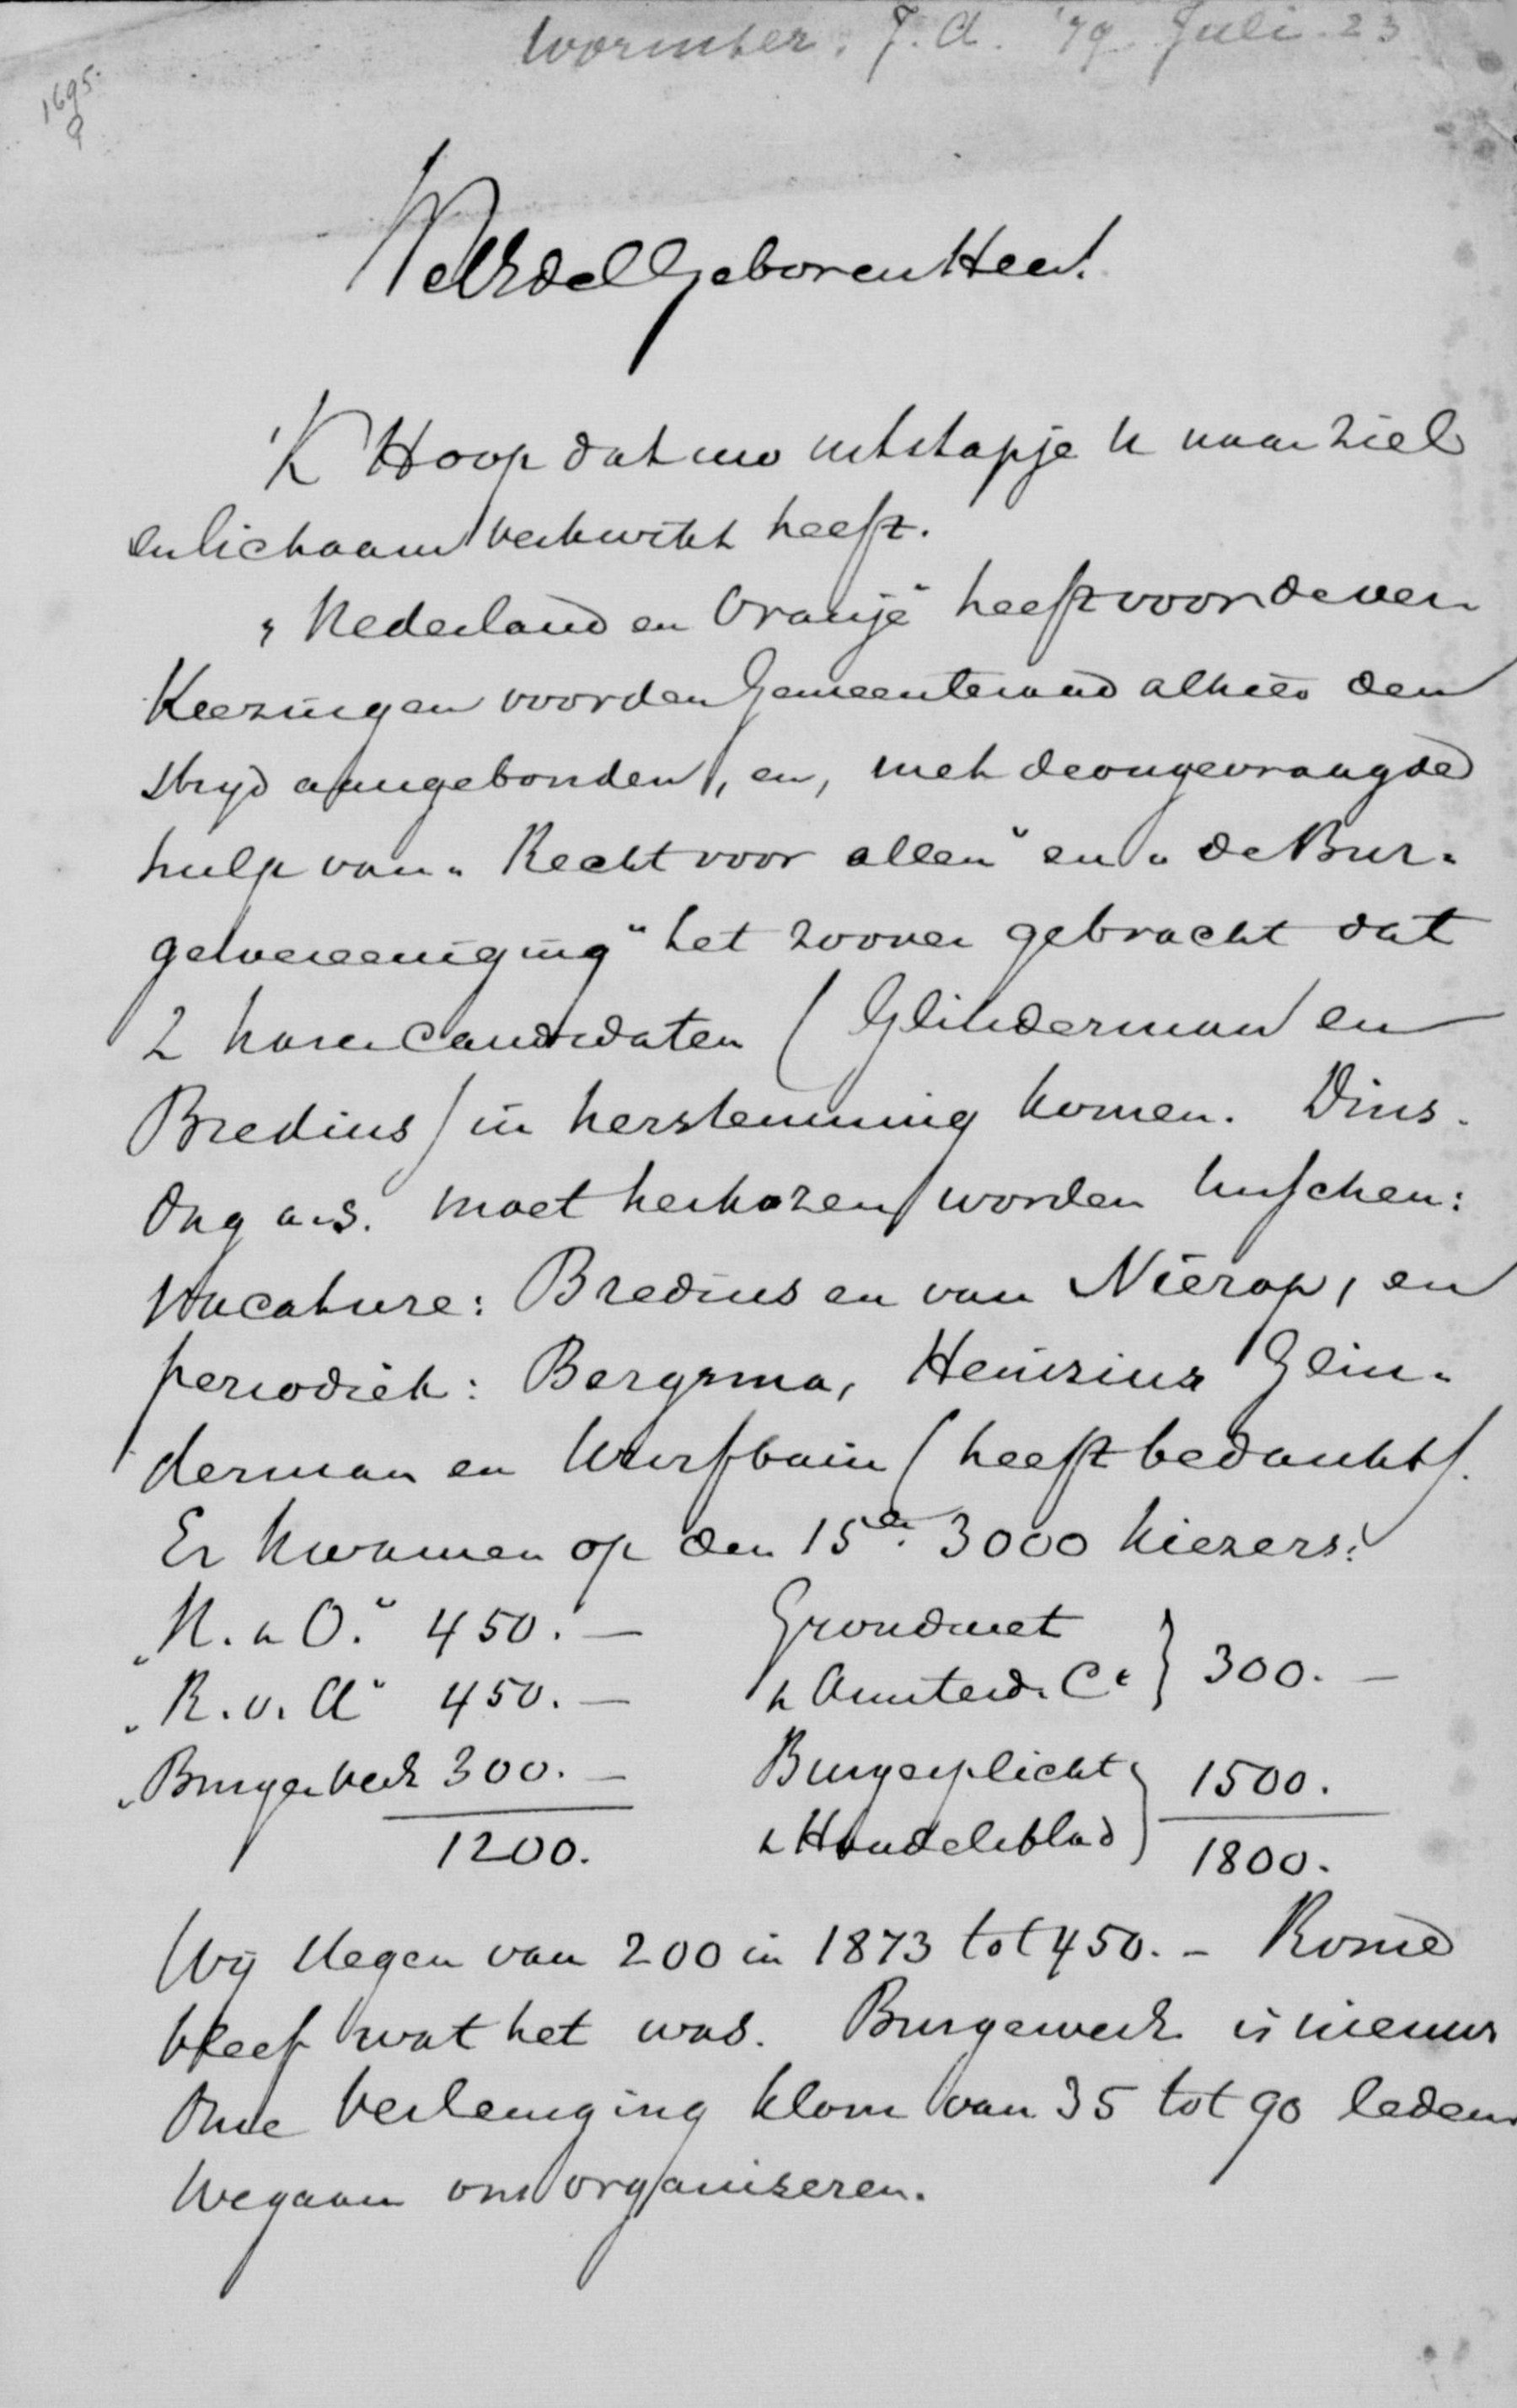 Wormser. J. A. '79 Juli 23
1695.
9
WelEdelGeboren Heer!
'K Hoop dat uw uitstapje U naar ziel
en lichaam verkwikt heeft.
„Nederland en Oranje" heeft voor de ver-
Kiezingen voor den Gemeenteraad alhier den
strijd aangebonden, en, met de ongevraagde
hulp van „Recht voor allen" en „de Bur-
gervereeniging" het zoover gebracht dat
2 harer Candidaten (Glinderman en
Bredius) in herstemming komen. Dins-
dag a.s. moet herkozen worden tusschen:
Vacature: Bredius en van Nierop, en
periodiek: Bergsma, Heinzius Glin-
derman en Wurfbain (heeft bedankt).
Er kwamen op den 15en 3000 kiezers:
„N. en O." 450.—
„R. v. A" 450.—
„Burgerver 300.—
1200.
Grondwet
& Amsterd. Ct } 300.—
Burgerplicht
& Handelsblad } 1500.
1800.
Wij stegen van 200 in 1873 tot 450.— Rome
bleef wat het was. Burgerver is nieuw
Onze Vereeniging klom van 35 tot 90 leden.
We gaan ons organiseren.